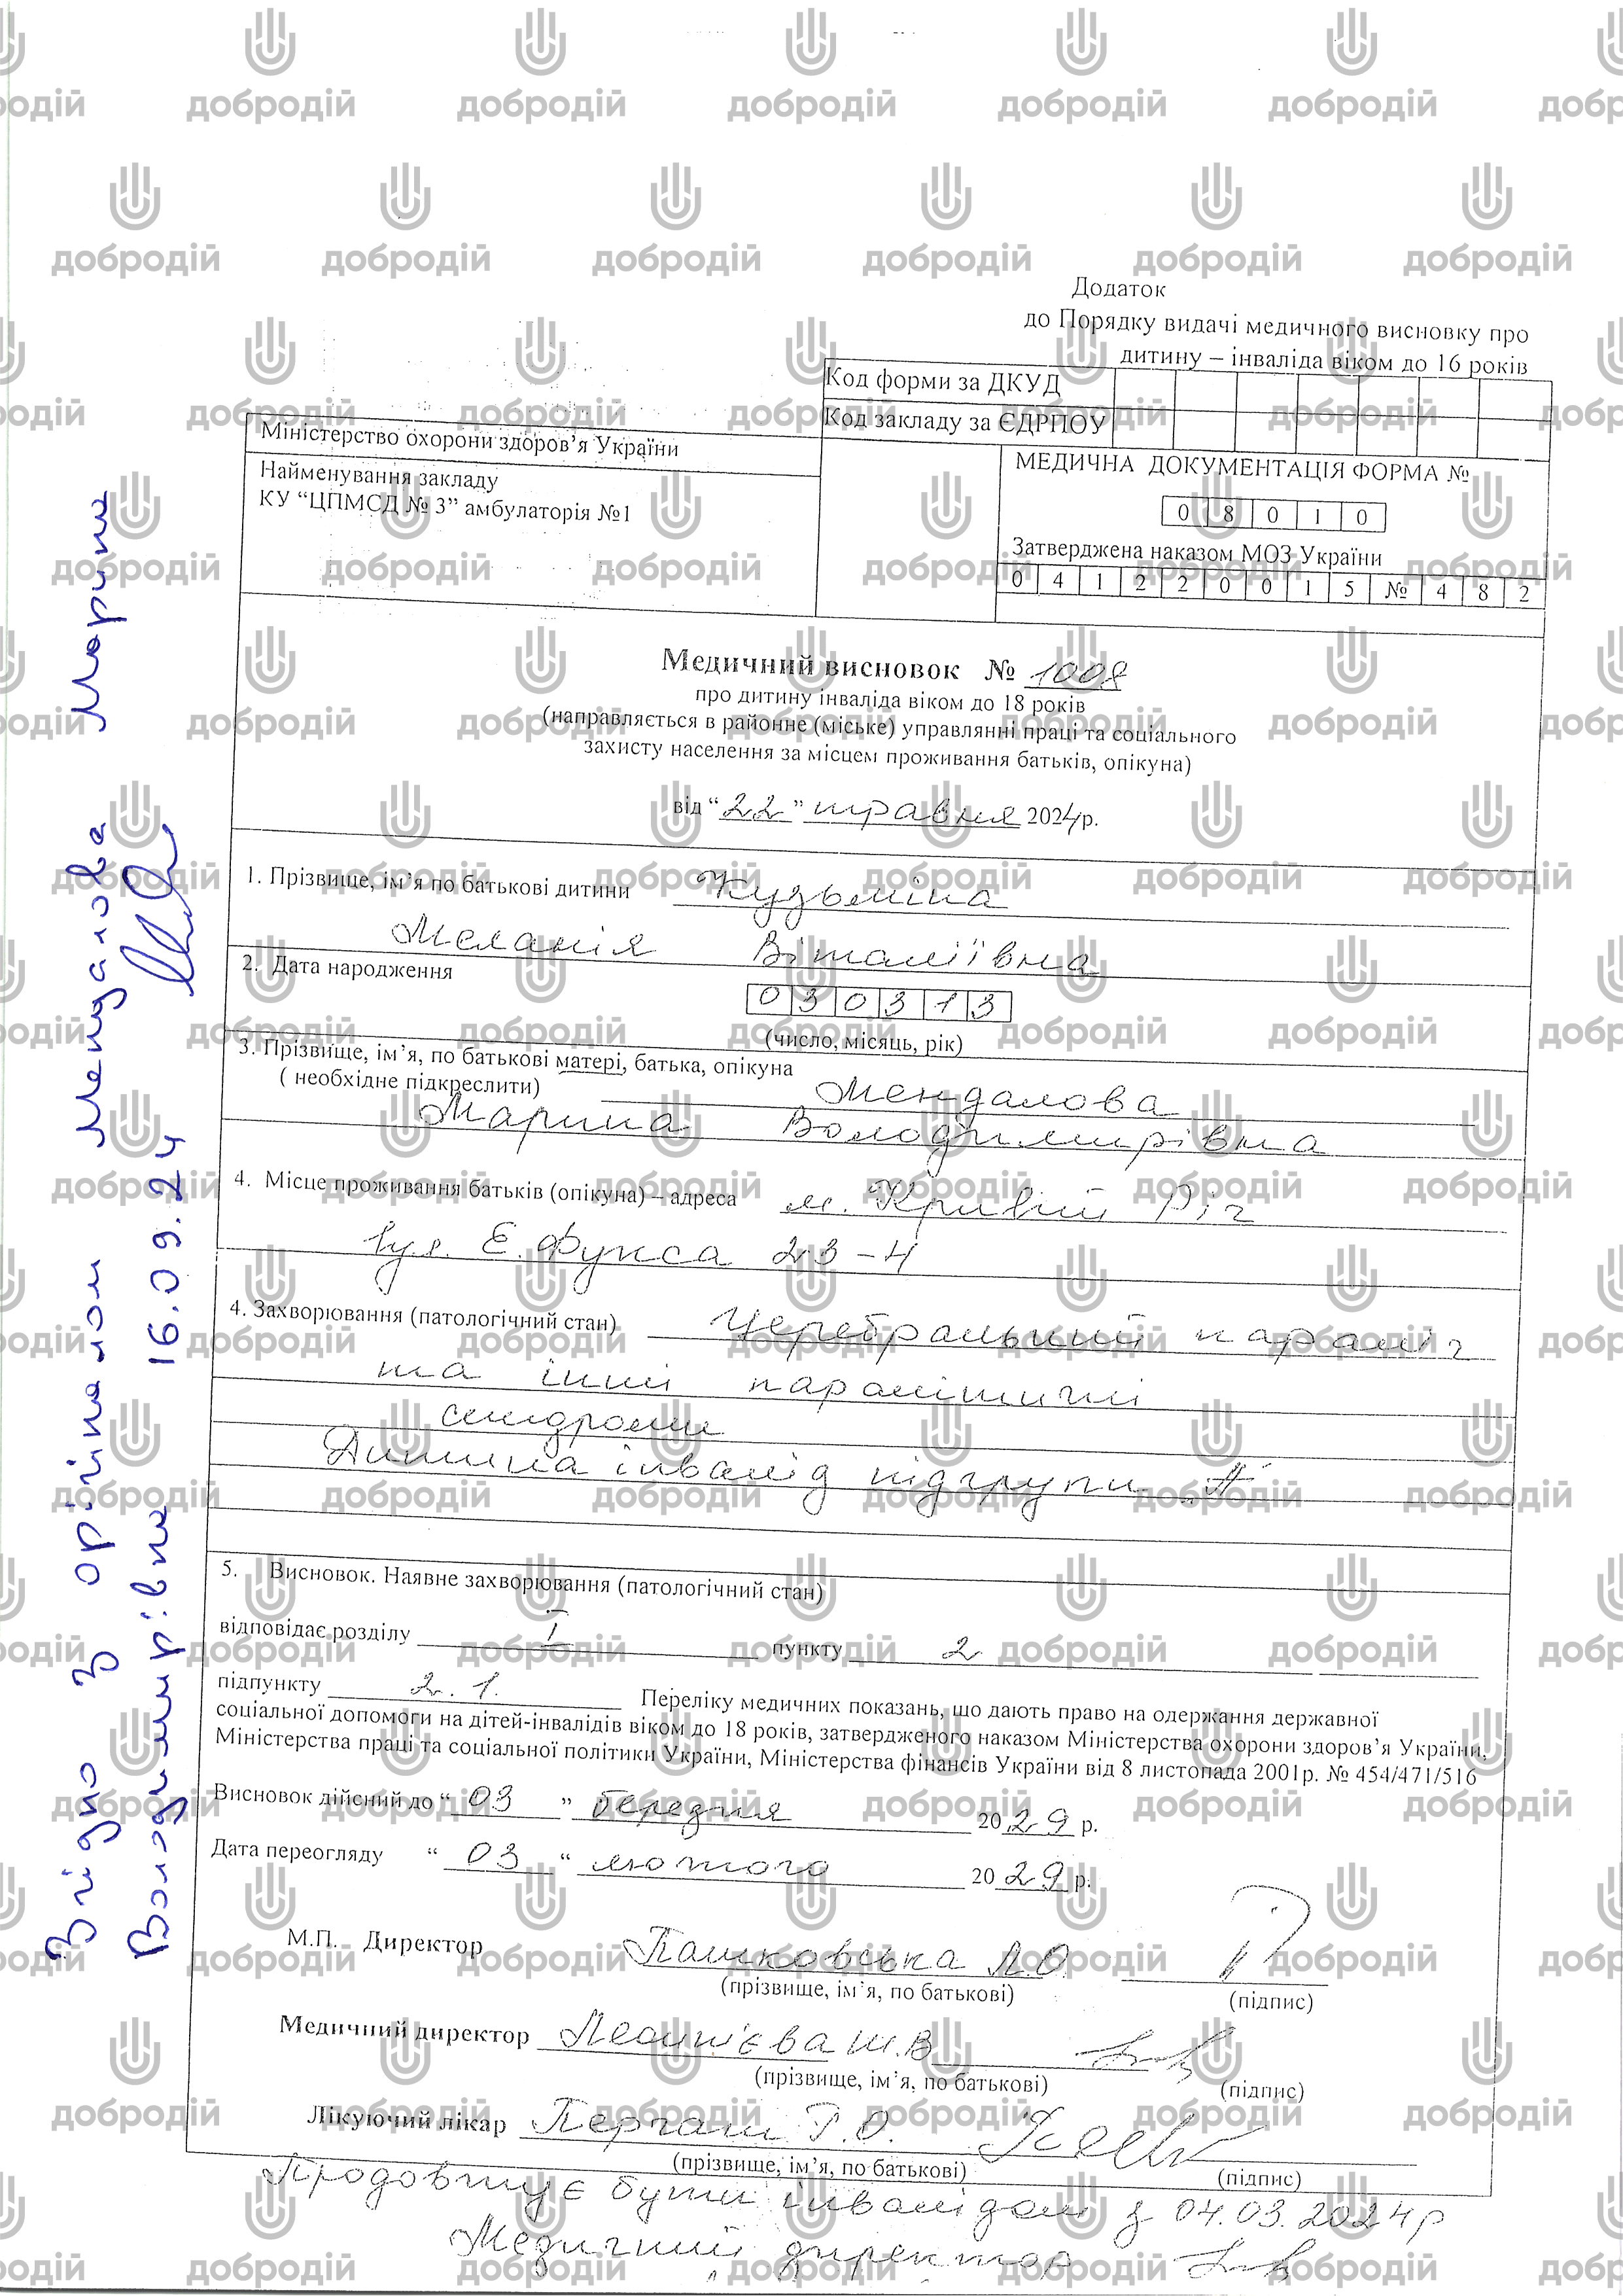 Додаток
до Порядку видачі медичного висновку про
дитину – інваліда віком до 16 років
Код форми за ДКУД
Код закладу за ЄДРПОУ
Міністерство охорони здоров’я України
Найменування закладу
КУ “ЦПМСД № 3” амбулаторія №1
МЕДИЧНА ДОКУМЕНТАЦІЯ ФОРМА №
0 8 0 1 0
Затверджена наказом МОЗ України
0 4 1 2 2 0 0 1 5 № 4 8 2
Медичний висновок № 1008
про дитину інваліда віком до 18 років
(направляється в районне (міське) управлянні праці та соціального
захисту населення за місцем проживання батьків, опікуна)
від “22” травня 2024р.
1. Прізвище, ім’я по батькові дитини Кузьміна
Меланія Віталіївна
2. Дата народження
0 3 0 3 1 3
(число, місяць, рік)
3. Прізвище, ім’я, по батькові матері, батька, опікуна
( необхідне підкреслити) Мендалова
Марина Володимирівна
4. Місце проживання батьків (опікуна) – адреса м. Кривий Ріг
вул. Е. Фукса 23-4
4. Захворювання (патологічний стан) Церебральний параліч
та інші паралітичні
синдроми
Дитина інвалід підгрупи „А”
5. Висновок. Наявне захворювання (патологічний стан)
відповідає розділу I пункту 2
підпункту 2.1. Переліку медичних показань, що дають право на одержання державної
соціальної допомоги на дітей-інвалідів віком до 18 років, затвердженого наказом Міністерства охорони здоров’я України,
Міністерства праці та соціальної політики України, Міністерства фінансів України від 8 листопада 2001р. № 454/471/516
Висновок дійсний до “03” березня 2029 р.
Дата переогляду “03“ лютого 2029 р.
М.П. Директор Пашковська Л.О.
(прізвище, ім’я, по батькові) (підпис)
Медичний директор Ш.В
(прізвище, ім’я, по батькові) (підпис)
Лікуючий лікар Г.О.
(прізвище, ім’я, по батькові) (підпис)
Продовжує бути інвалідом з 04.03.2024р
Медичний директор
Згідно з оргіналом Мендалова Марина
Володимирівна 16.09.24
добродій